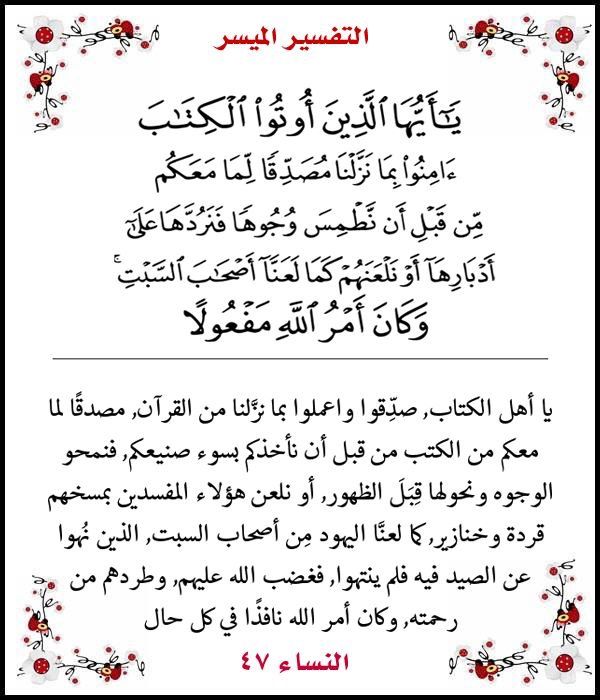 التفسير الميسر
يَٰٓأَيُّهَا ٱلَّذِينَ أُوتُوا۟ ٱلْكِتَٰبَ
ءَامِنُوا۟ بِمَا نَزَّلْنَا مُصَدِّقًا لِّمَا مَعَكُم
مِّن قَبْلِ أَن نَّطْمِسَ وُجُوهًا فَنَرُدَّهَا عَلَىٰٓ
أَدْبَارِهَآ أَوْ نَلْعَنَهُمْ كَمَا لَعَنَّآ أَصْحَٰبَ ٱلسَّبْتِ ۚ
وَكَانَ أَمْرُ ٱللَّهِ مَفْعُولًا
يا أهل الكتاب, صدِّقوا واعملوا بما نزَّلنا من القرآن, مصدقًا لما
معكم من الكتب من قبل أن نأخذكم بسوء صنيعكم, فنمحو
الوجوه ونحولها قِبَلَ الظهور, أو نلعن هؤلاء المفسدين بمسخهم
قردة وخنازير, كما لعنَّا اليهود مِن أصحاب السبت, الذين نُهوا
عن الصيد فيه فلم ينتهوا, فغضب الله عليهم, وطردهم من
رحمته, وكان أمر الله نافذًا في كل حال
النساء ٤٧